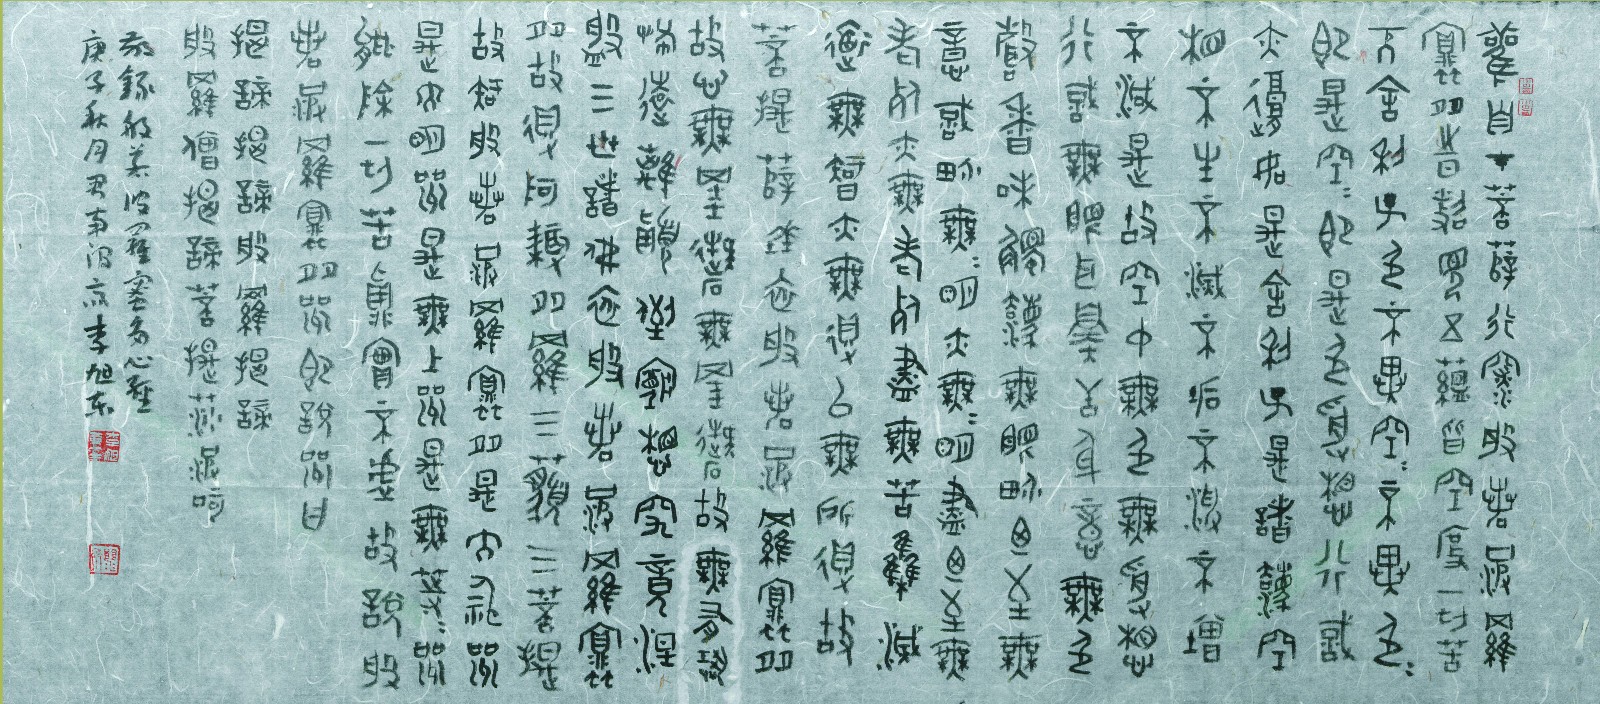 觀自在菩薩行深般若波羅
蜜多時照見五蘊皆空度一切苦
厄舍利子色不異空=不異色=
即是空=即是色受想行識
亦復如是舍利子是諸法空
相不生不滅不垢不淨不增
不減是故空中無色無受想
行識無眼耳鼻舌身意無色
聲香味觸法無眼界乃至無
意識界無=明亦無=明盡乃至無
老死亦無老死盡無苦集滅
道無智亦無得以無所得故
菩提薩埵依般若波羅蜜多
故心無罣礙無罣礙故無有恐
怖遠離顛倒夢想究竟涅
槃三世諸佛依般若波羅蜜
多故得阿耨多羅三藐三菩提
故知般若波羅蜜多是大神咒
是大明咒是無上咒是無等=咒
能除一切苦真實不虛故說般
若波羅蜜多咒即說咒曰
揭諦揭諦般羅揭諦
般羅僧揭諦菩提莎婆訶
敬錄般若波羅蜜多心經
庚子秋月李旭东